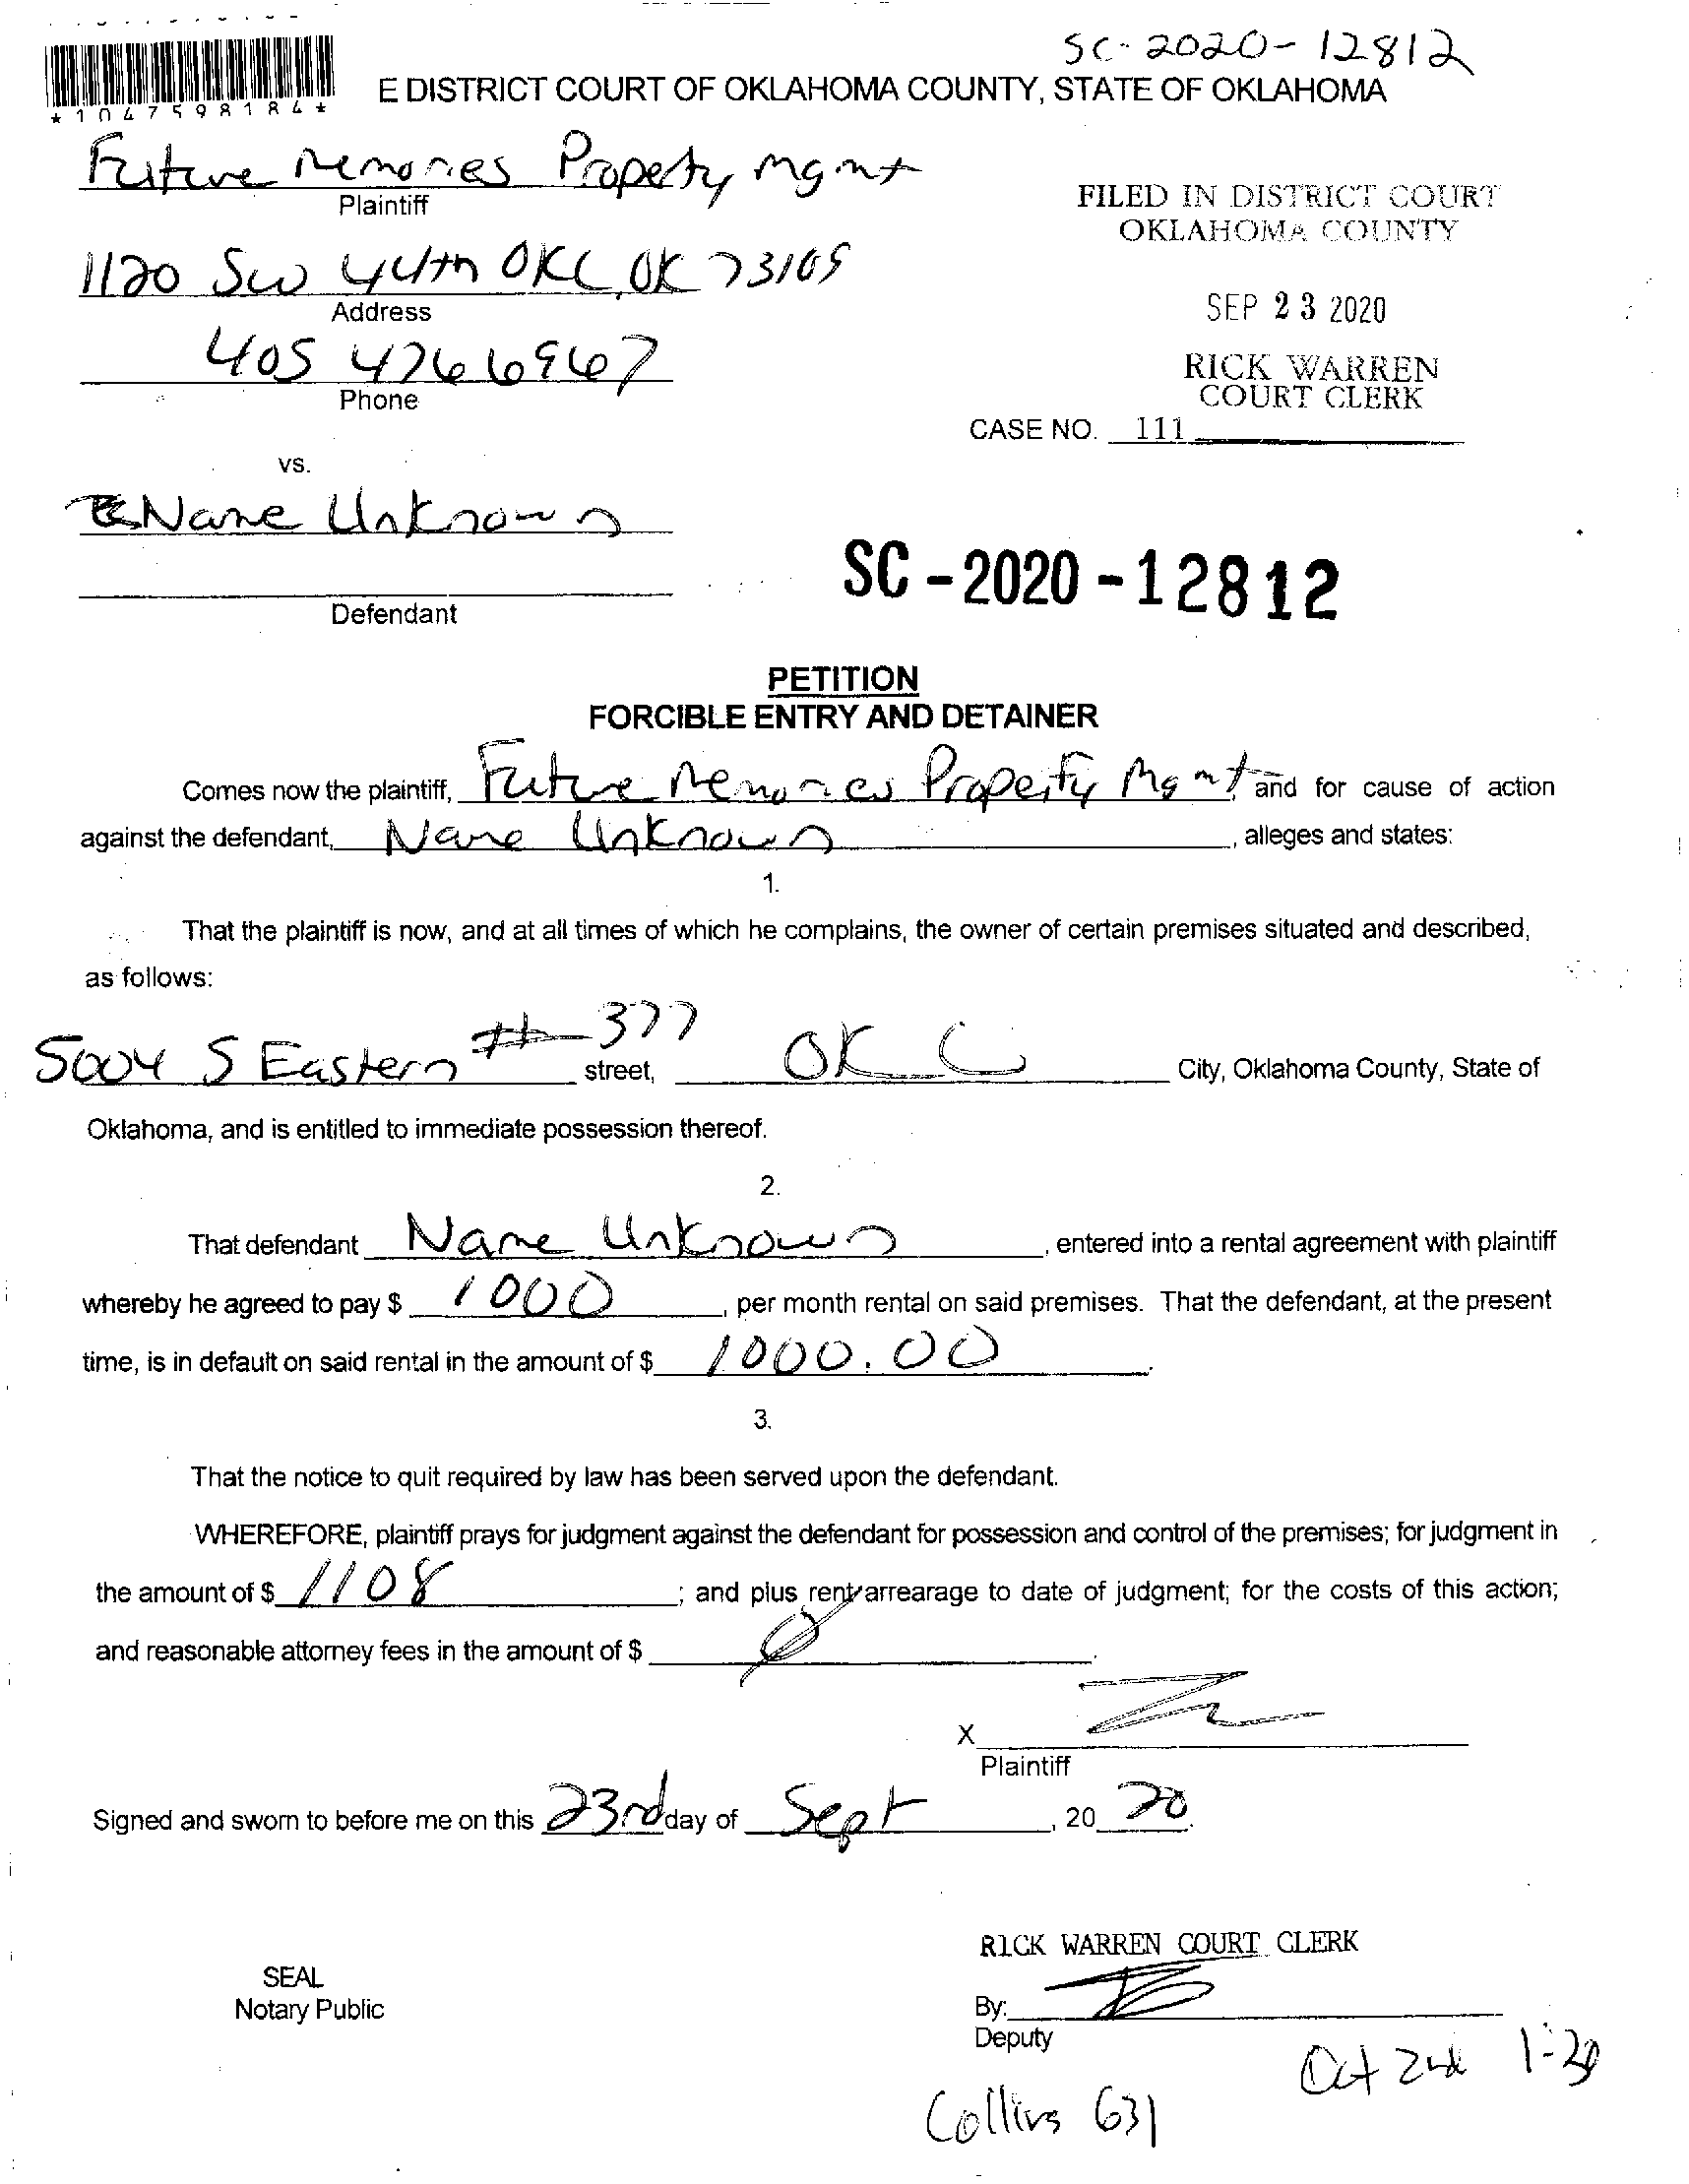 SC-2020-12812
*1047598184*
E DISTRICT COURT OF OKLAHOMA COUNTY, STATE OF OKLAHOMA
Future Memories Property Mgmt
Plaintiff
FILED IN DISTRICT COURT
OKLAHOMA COUNTY
1120 SW 44th OKC, OK 73109
Address
SEP 23 2020
405 476 6967
Phone
RICK WARREN
COURT CLERK
CASE NO. 111
vs.
Name Unknown
SC-2020-12812
Defendant
PETITION
FORCIBLE ENTRY AND DETAINER
Comes now the plaintiff, Future Memories Property Mgmt, and for cause of action
against the defendant, Name Unknown, alleges and states:
1.
That the plaintiff is now, and at all times of which he complains, the owner of certain premises situated and described,
as follows:
5004 S Eastern # 377 street, OKC City, Oklahoma County, State of
Oklahoma, and is entitled to immediate possession thereof.
2.
That defendant Name Unknown, entered into a rental agreement with plaintiff
whereby he agreed to pay $ 1000, per month rental on said premises. That the defendant, at the present
time, is in default on said rental in the amount of $ 1000.00.
3.
That the notice to quit required by law has been served upon the defendant.
WHEREFORE, plaintiff prays for judgment against the defendant for possession and control of the premises; for judgment in
the amount of $ 1108; and plus rent arrearage to date of judgment; for the costs of this action;
and reasonable attorney fees in the amount of $ 0.
X
Plaintiff
Signed and sworn to before me on this 23rd day of Sept, 20 20.
RICK WARREN COURT CLERK
SEAL
Notary Public
By:
Deputy
Oct 2nd 1:30
Collins 631